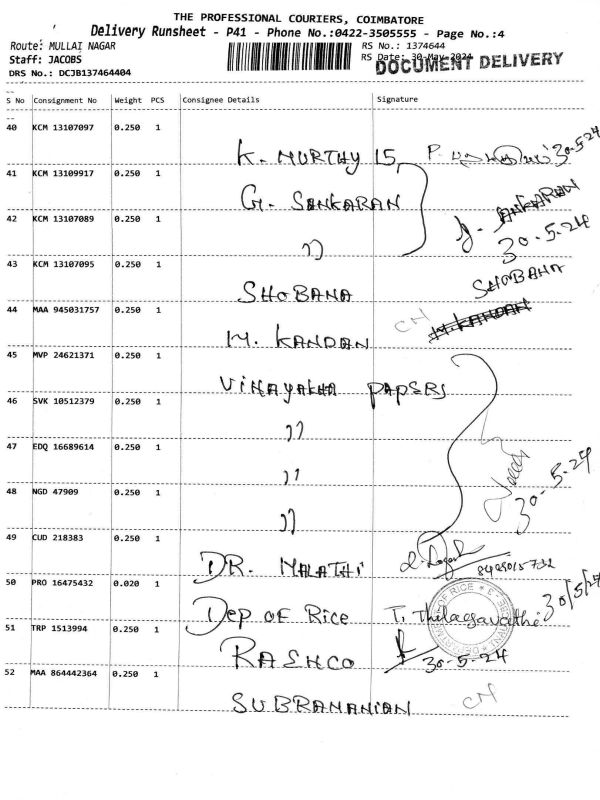 THE PROFESSIONAL COURIERS, COIMBATORE
Delivery Runsheet - P41 - Phone No.:0422-3505555 - Page No.:4
Route: MULLAI NAGAR
RS No.: 1374644
Staff: JACOBS
RS Date: 30-May-2024
DOCUMENT DELIVERY
DRS No.: DCJB137464404
S No Consignment No Weight PCS Consignee Details Signature
40 KCM 13107097 0.250 1
K. MURTHY 15 30-5-24
41 KCM 13109917 0.250 1
G. SANKARAN
42 KCM 13107089 0.250 1
") G. SANKARAN
30-5-24
43 KCM 13107095 0.250 1
SHOBANA SHOBANA
44 MAA 945031757 0.250 1
M. KANDAN CN M. KANDAN
45 MVP 24621371 0.250 1
VINAYAKHA PAPERS
46 SVK 10512379 0.250 1
"
47 EDQ 16689614 0.250 1
"
48 NGD 47909 0.250 1
" 30-5-24
49 CUD 218383 0.250 1
DR. MALATHI
50 PRO 16475432 0.020 1
Dep OF Rice T. Thilagavathi 30/5/24
51 TRP 1513994 0.250 1
RASHCO 30-5-24
52 MAA 864442364 0.250 1
SUBRAMANIAN CN